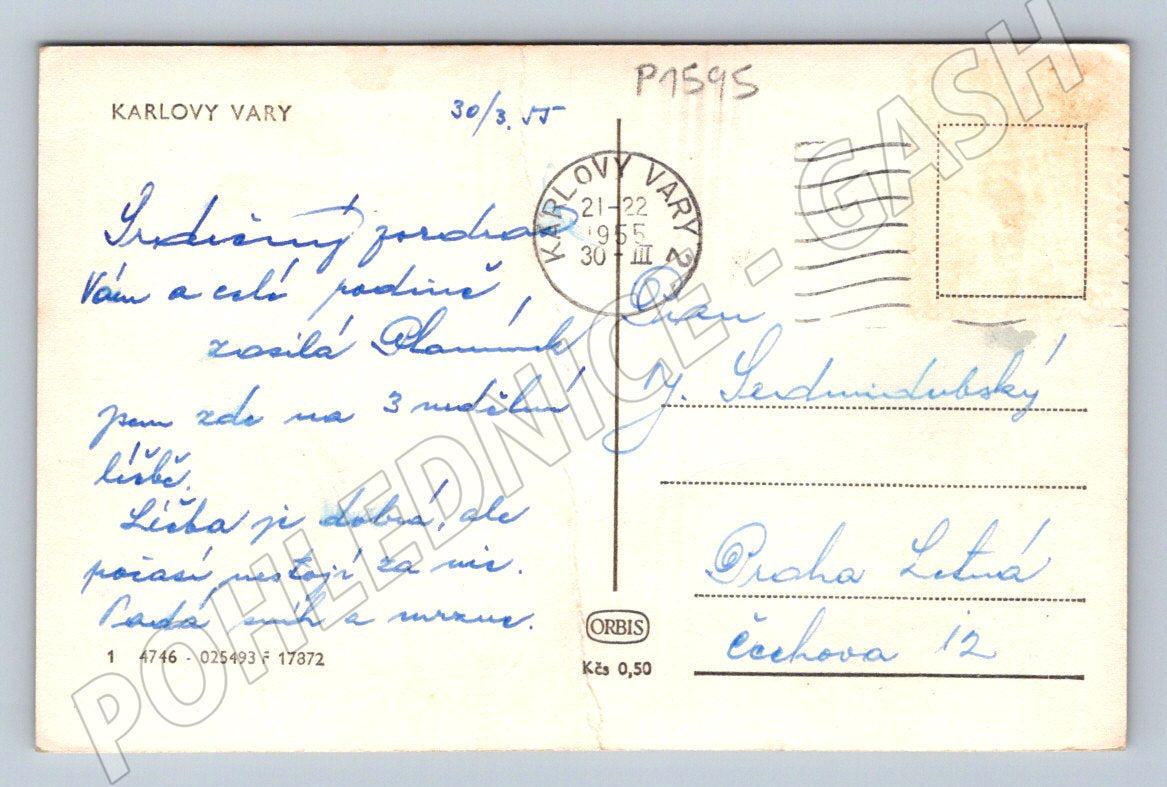 KARLOVY VARY
30/3. 55
P1595
KARLOVY VARY 2
21-22
1955
30-III
Srdečný pozdrav
Vám a celé rodině,
zasílá
jsem zde na 3 nedělní
léčbě.
Léčba je dobrá, ale
počasí nestojí za nic.
Padá sníh a mrzne.
1 4746 - 025493 F 17872
ORBIS
Kčs 0,50
Pan
J. Sedmidubský
Praha Letná
Čechova 12
POHLEDNICE - GASH